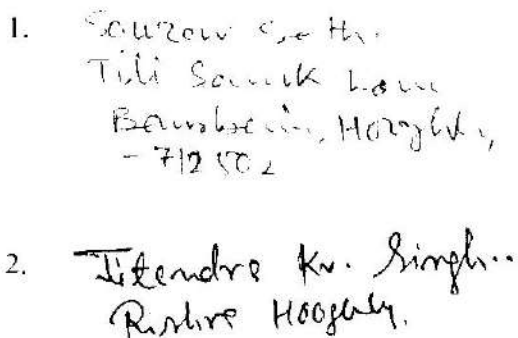 1. Sourav Seth.
Tili Samuk Lane
Bansberia, Hooghly,
- 712502
2. Jitendra Kr. Singh..
Rishra Hooghly.